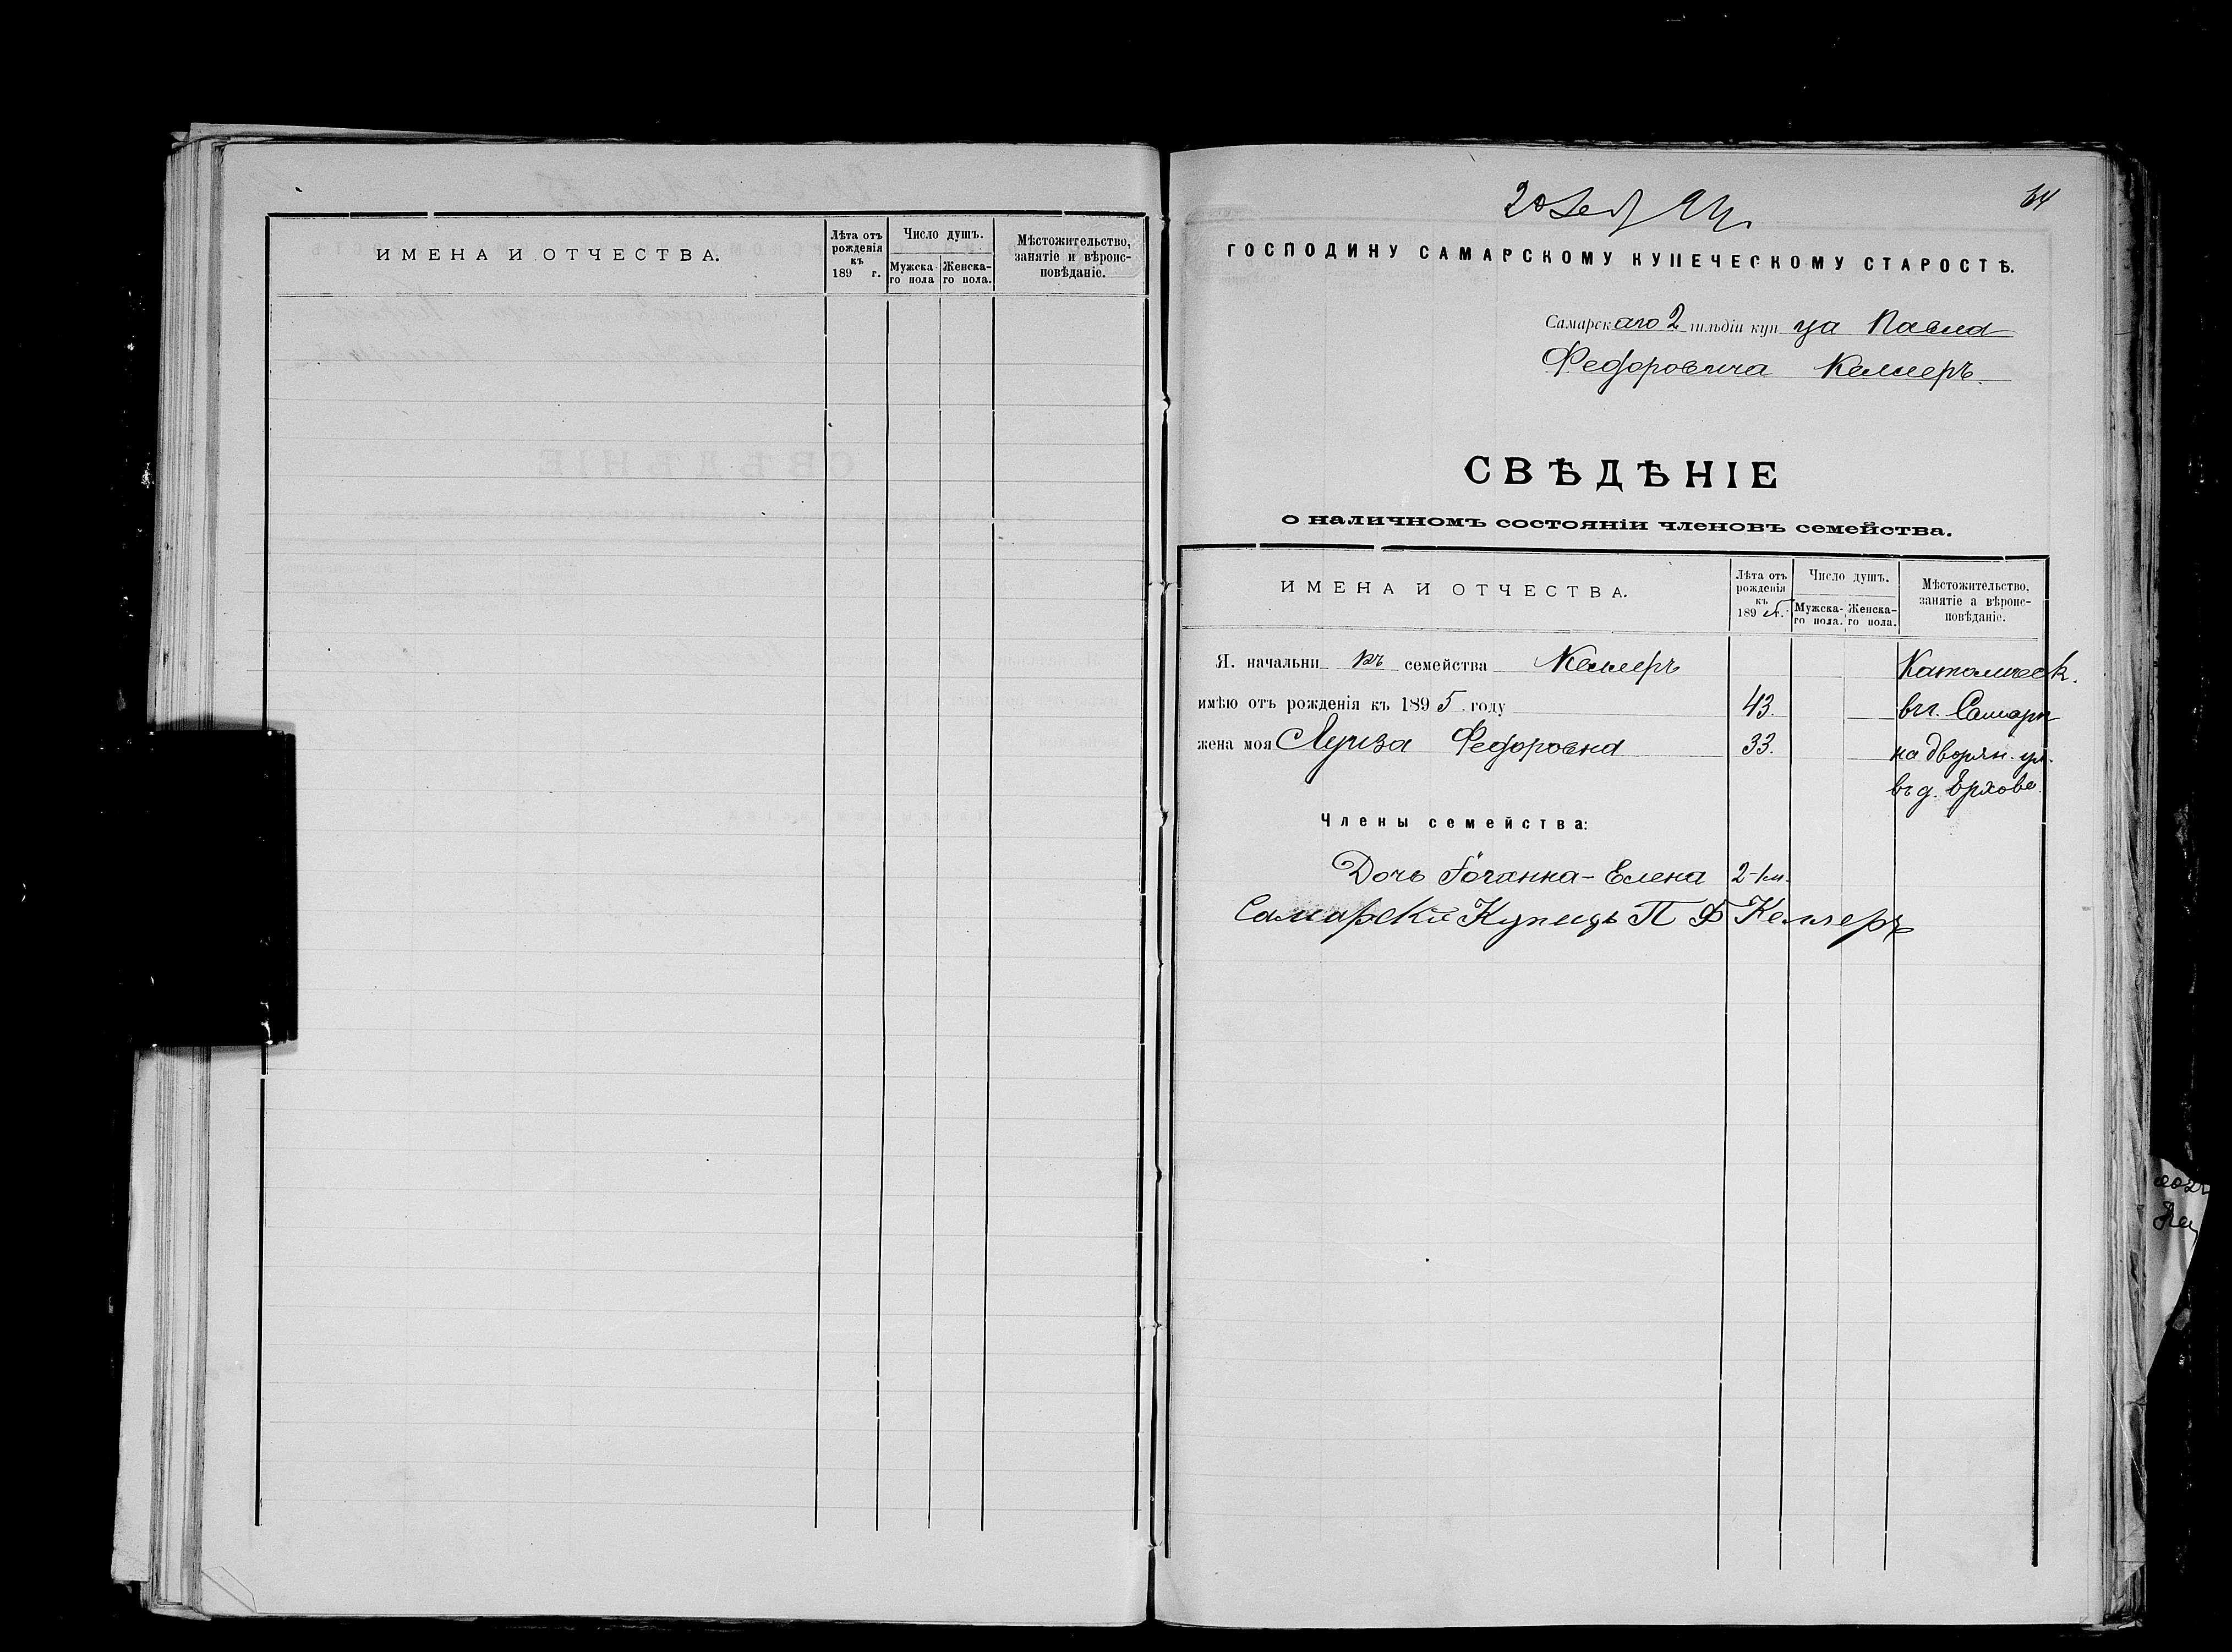 ИМЕНА И ОТЧЕСТВА.
Лѣта отъ рожденія къ 189 г.
Число душъ.
Мужска-го пола
Женска-го пола.
Мѣстожительство, занятіе и вѣроис-повѣданіе.
64
ГОСПОДИНУ САМАРСКОМУ КУПЕЧЕСКОМУ СТАРОСТѢ.
Самарскаго 2 гильдіи купца Павла
Федоровича Келлеръ.
СВѢДѢНІЕ
о наличномъ состояніи членовъ семейства.
ИМЕНА И ОТЧЕСТВА.
Лѣта отъ рожденія къ 1895 г.
Число душъ.
Мужска-го пола.
Женска-го пола.
Мѣстожительство, занятіе а вѣроис-повѣданіе.
Я. начальникъ семейства Келлеръ Католическ.
имѣю отъ рожденія къ 1895 году 43. въ г. Самарѣ
жена моя Луиза Федоровна 33. на дворян. ул.
въ д.
Члены семейства:
Дочь Іоганна-Елена 2-1м.
Самарскій Купецъ П Ф Келлеръ